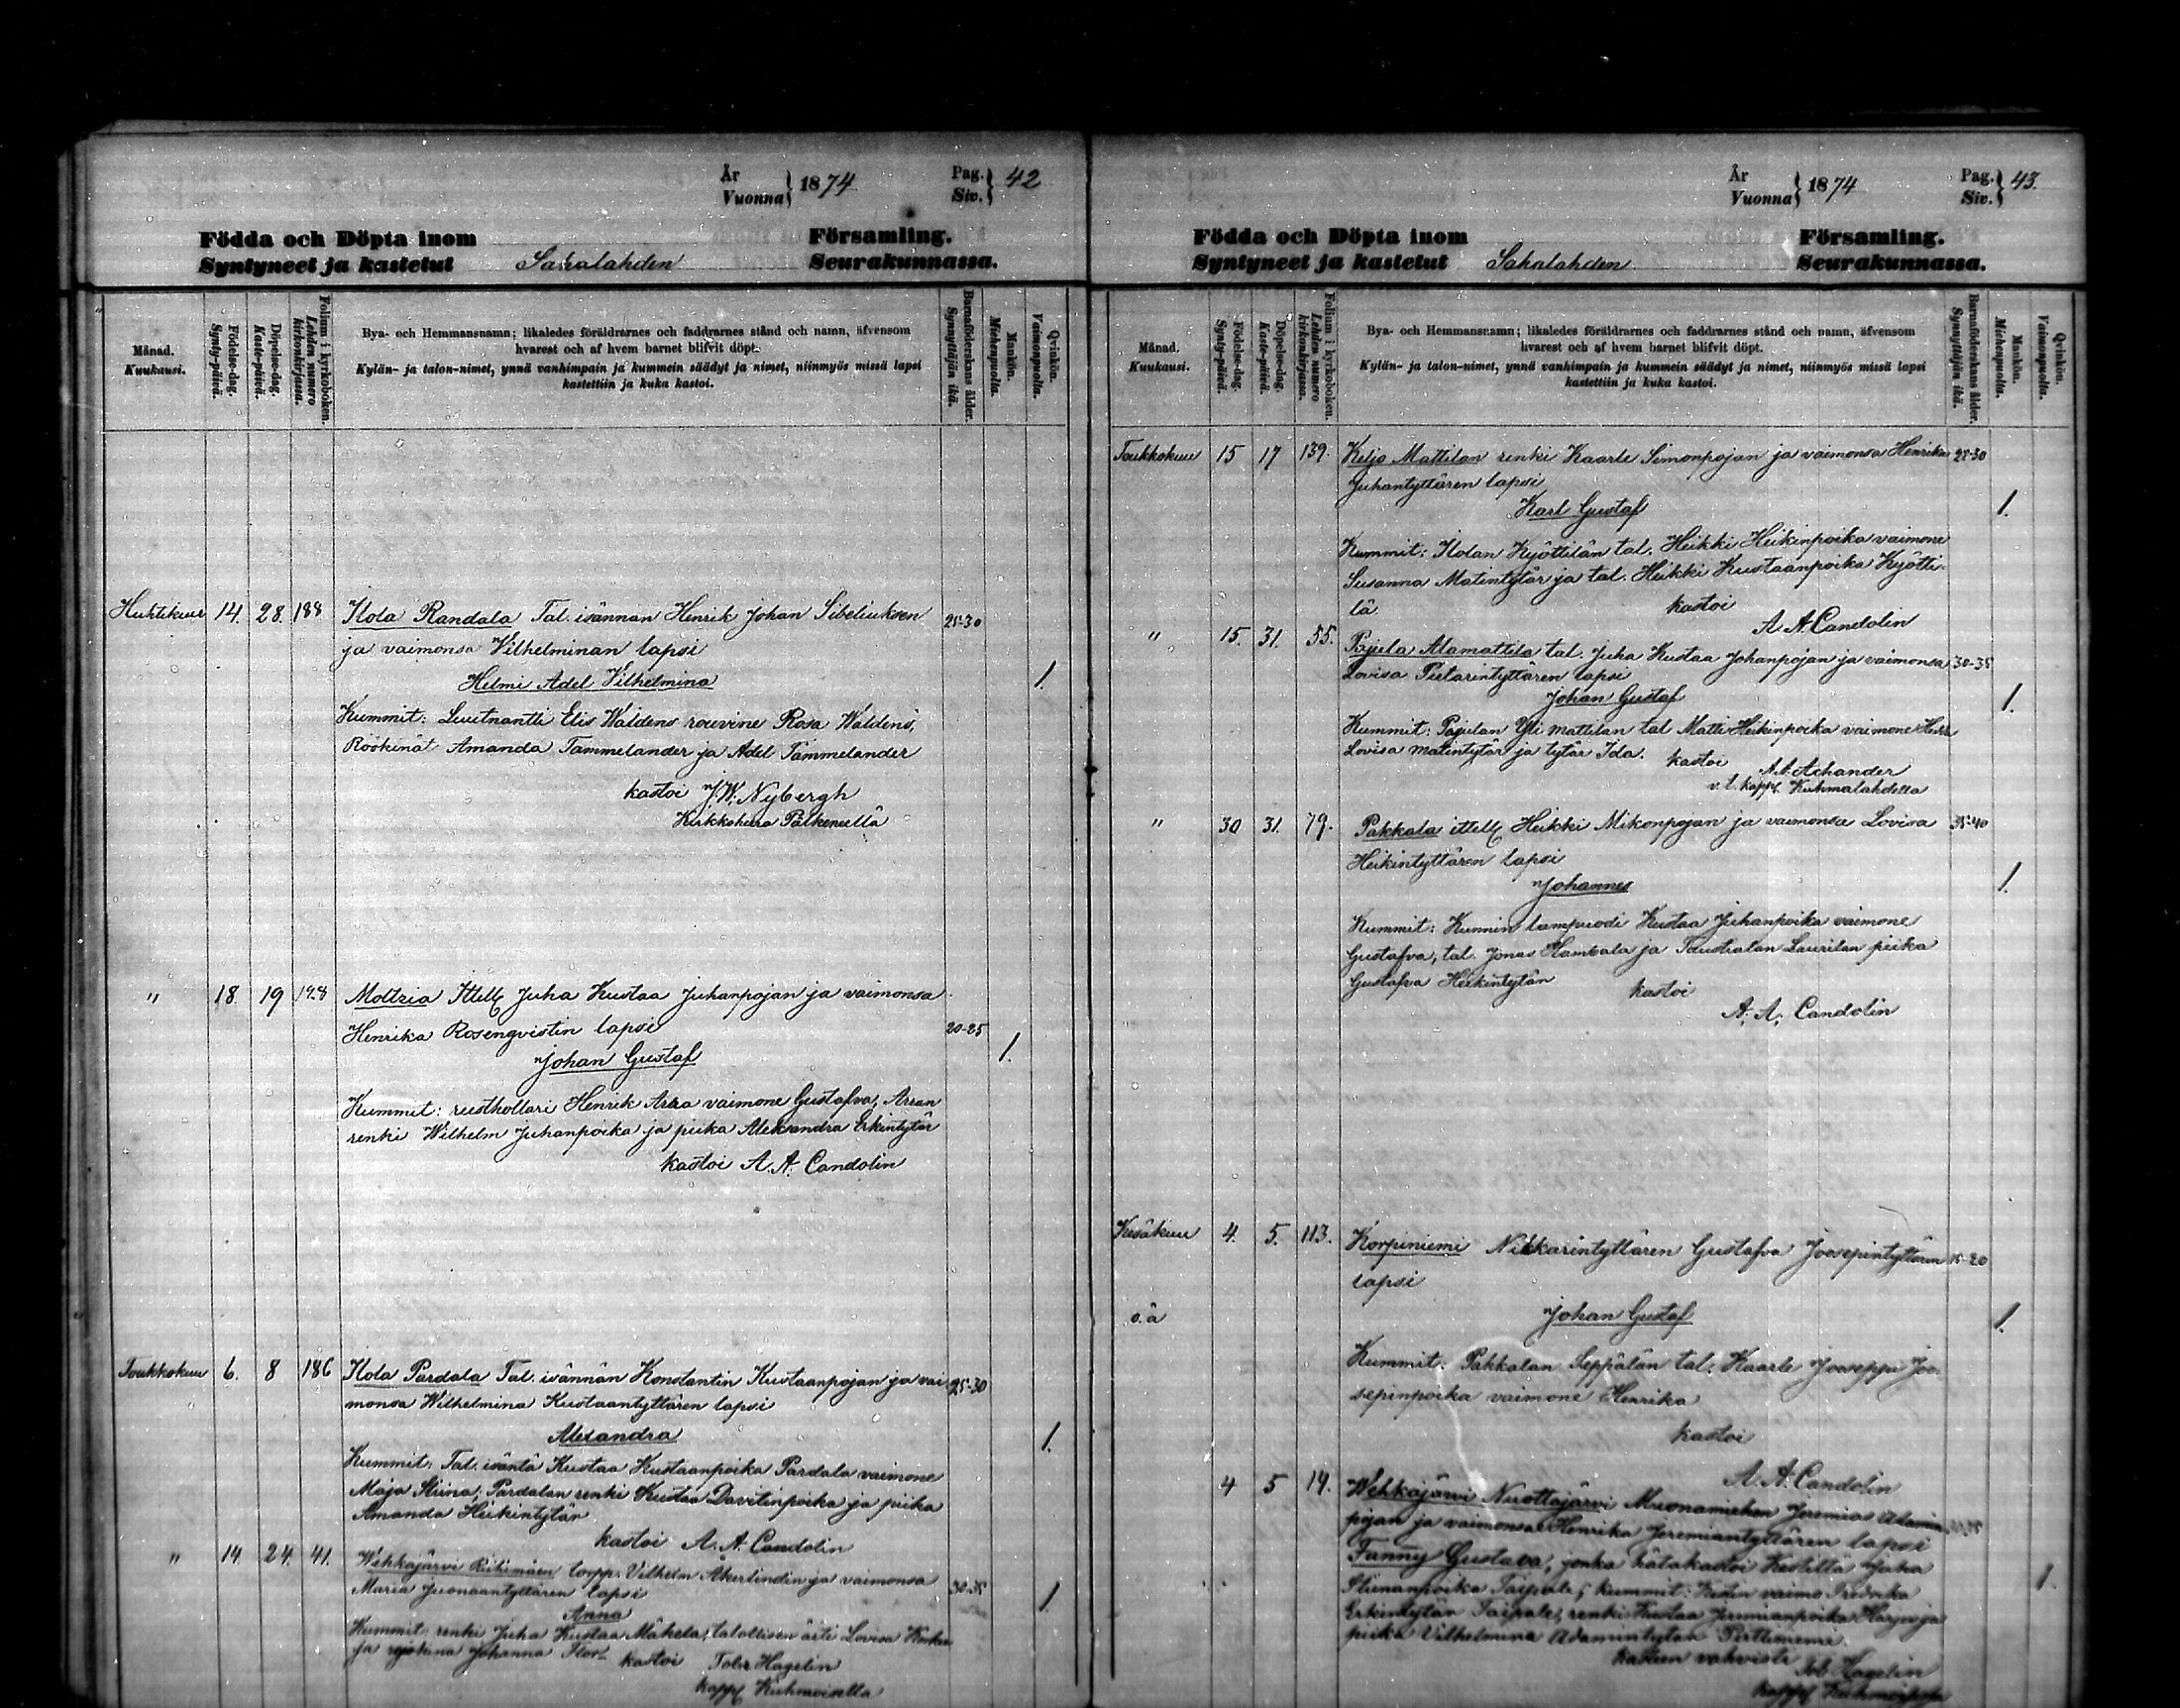 År
Vuonna } 1874 Pag.
Siv. } 42
Födda och Döpta inom Församling.
Syntyneet ja kastetut Sahalahden Seurakunnassa.
Månad.
Kuukausi.
Födelse-dag.
Synty-päivä.
Döpelse-dag.
Kaste-päivä.
Folium i kyrkoboken.
Lehden numero kirkonkirjassa.
Bya- och Hemmansnamn; likaledes föräldrarnes och faddrarnes stånd och namn, äfvensom
hvarest och af hvem barnet blifvit döpt.
Kylän- ja talon-nimet, ynnä vanhimpain ja kummein säädyt ja nimet, niinmyös missä lapsi
kastettiin ja kuka kastoi.
Barnaföderskans ålder.
Synnyttäjän ikä.
Mankön.
Miehenpuolta.
Qvinkön.
Vaimonpuolta.
Huhtikuu 14. 28. 188 Ilola Randala Tal. isännän Henrik Johan Sibeliuksen 25-30
ja vaimonsa Vilhelminan lapsi
Helmi Adel Vilhelmina 1.
Kummit: Luutnantti Elis Waldens rouvine Rosa Waldens,
Röökinät Amanda Tammelander ja Adel Tammelander
kastoi J.W. Nybergh
Kirkkoherra Pälkeneellä
" 18. 19 198 Moltzia Ittell Juha Kustaa Juhanpojan ja vaimonsa
Henrika Rosengvistin lapsi 20-25
Johan Gustaf 1.
Kummit: rusthollari Henrik Arra vaimone Gustafva, Arran
renki Wilhelm Juhanpoika ja piika Aleksandra Erkintytär
kastoi A. A. Candolin
Toukkokuu 6. 8 186 Ilola Pardala Tal. isännän Konstantin Kustaanpojan ja vai 25-30
monsa Wilhelmina Kustaantyttären lapsi
Alexandra 1.
Kummit: Tal. isäntä Kustaa Kustaanpoika Pardala vaimone
Maja Stiina, Pardalan renki Kustaa Davitinpoika ja piika
Amanda Heikintytär
kastoi A. A. Candolin
" 14. 24. 41. Wehkajärvi Riihimäen torpp. Vilhelm Åkerlindin ja vaimonsa
Maria Juonaantyttären lapsi 30-35
Anna 1.
Kummit: renki Juha Kustaa Mäkela, talollisen äiti Lovisa
ja Johanna kastoi Tob. Hagelin
kapp Kuhmoisella
År
Vuonna } 1874 Pag.
Siv. } 43.
Födda och Döpta inom Församling.
Syntyneet ja kastetut Sahalahden Seurakunnassa.
Månad.
Kuukausi.
Födelse-dag.
Synty-päivä.
Döpelse-dag.
Kaste-päivä.
Folium i kyrkoboken.
Lehden numero kirkonkirjassa.
Bya- och Hemmansnamn; likaledes föräldrarnes och faddrarnes stånd och namn, äfvensom
hvarest och af hvem barnet blifvit döpt.
Kylän- ja talon-nimet, ynnä vanhimpain ja kummein säädyt ja nimet, niinmyös missä lapsi
kastettiin ja kuka kastoi.
Barnaföderskans ålder.
Synnyttäjän ikä.
Mankön.
Miehenpuolta.
Qvinkön.
Vaimonpuolta.
Toukkokuu 15 17 139. Keljo Mattilan renki Kaarle Simonpojan ja vaimonsa Henrika 25-30
Juhantyttären lapsi
Karl Gustaf 1.
Kummit: Ilolan Kyöttilän tal. Heikki Heikinpoika vaimone
Susanna Matintytär ja tal. Heikki Kustaanpoika Kyötti-
lä kastoi
A. A. Candolin
" 15. 31. 55. Pajula Alamattila tal. Juha Kustaa Johanpojan ja vaimonsa 30-35
Lovisa Pietarintyttären lapsi
Johan Gustaf 1.
Kummit: Pajulan Yli mattilan tal Matti Heikinpoika vaimone
Lovisa Matintytär ja tytär Ida. kastoi
A. A. Achander
v.t. kapp. Kuhmalahdella
" 30 31. 79. Pakkala ittell Heikki Mikonpojan ja vaimonsa Lovisa 35-40
Heikintyttären lapsi
Johannes 1.
Kummit: Kunnin lampuodi Kustaa Juhanpoika vaimone
Gustafva, tal. Jonas Hambala ja Taustialan Laurilan piika
Gustafva Heikintytär kastoi
A. A. Candolin
Kesäkuu 4. 5. 113. Korpiniemi Nikkarintyttären Gustafva Joosepintyttären 15-20
lapsi
o. ä Johan Gustaf 1.
Kummit: Pakkalan Seppälän tal. Kaarle Jooseppi Joo-
sepinpoika vaimone Henrika
kastoi
A. A. Candolin
4 5 19. Wehkajärvi Nuottajärvi Muonamiehen Jeremias Adamin
pojan ja vaimonsa Henrika Jeremiantyttären lapsi
Fanny Gustava, jonka hätäkastoi Kestillä Juha 1.
Stiinanpoika Taipale; kummit: Kestin vaimo Fredrika
Erkintytär Taipale, renki Kustaa Jeremianpoika ja
piika Vilhelmina Adamintytär Pirttiniemi.
kasteen vahvisti Tob. Hagelin
kapp